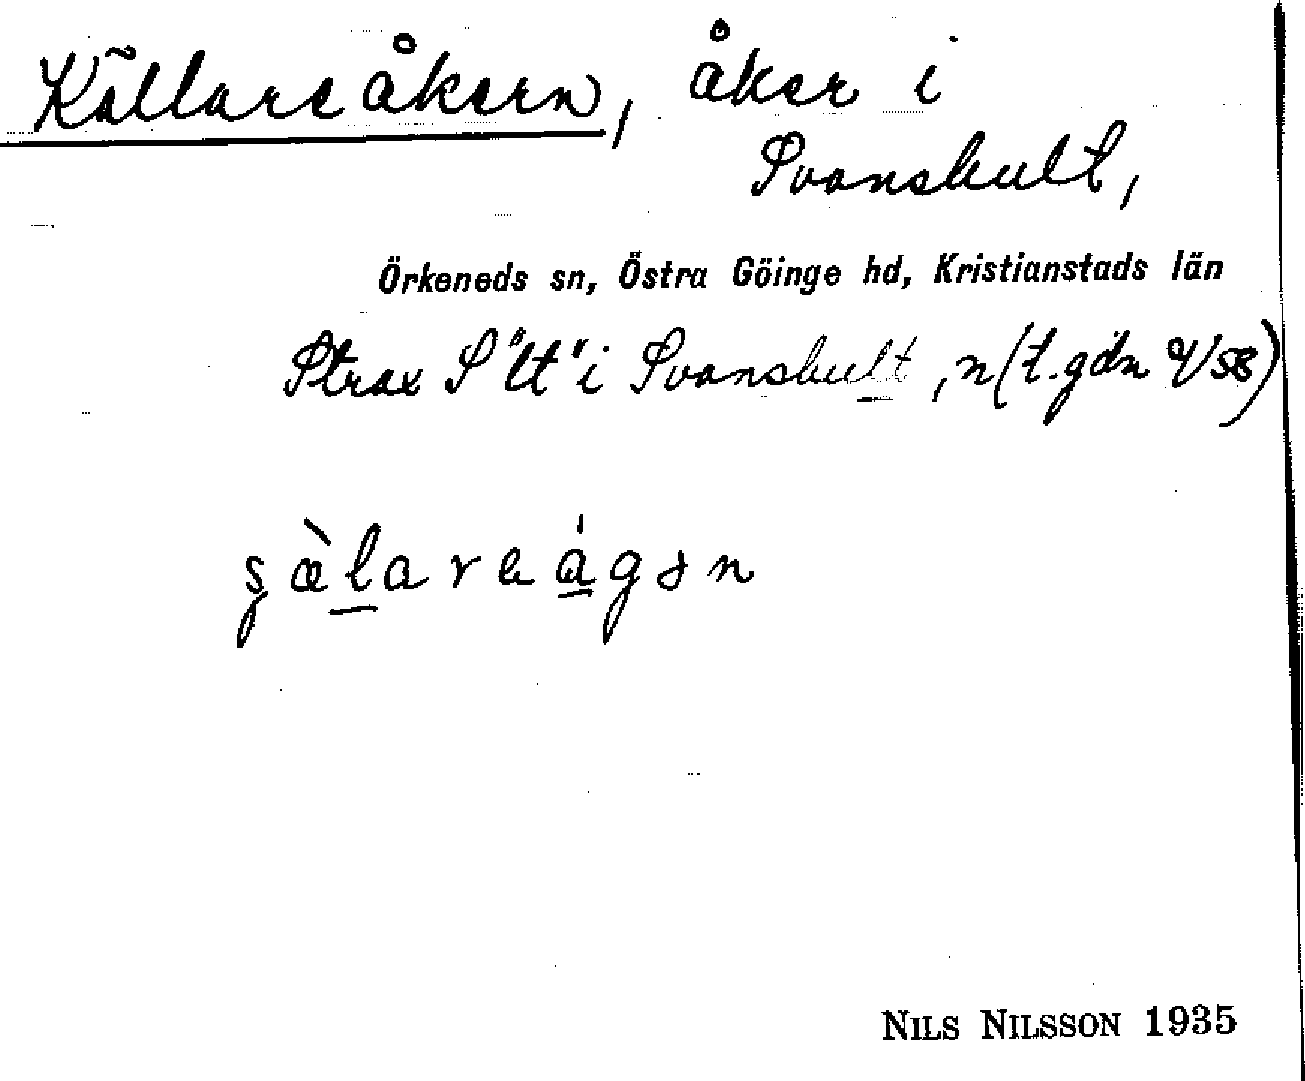 Källareåkern, åker i
Svanshult,
Örkeneds sn, Östra Göinge hd, Kristianstads län
Strax S "lt" i Svanshult, n (t. gdn 9/58)
NILS NILSSON 1935